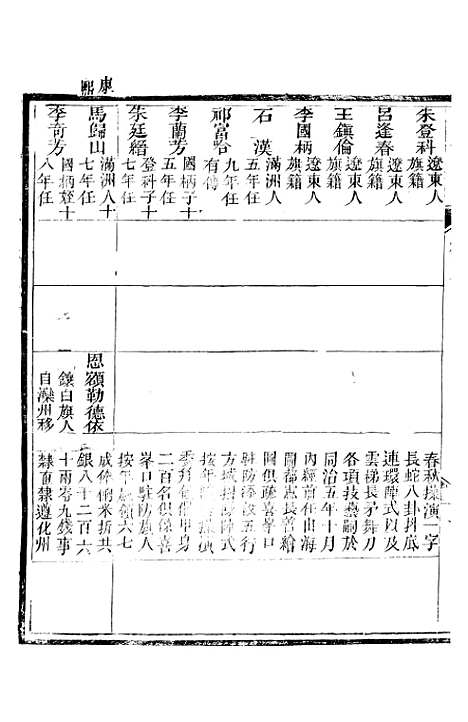 朱登科 遼東人 旗籍
呂逢春 遼東人 旗籍
王鎮倫 遼東人 旗籍
李國柄 遼東人 旗籍
石漢 滿洲人 五年任
祁富哈 九年任 有傳
李蘭芳 國柄子十五年任
朱廷縉 登科子十七年任
康熙
馬歸山 滿洲人十七年任
李奇芳 國柄姪十八年任
恩額勒德依
鑲白旗人
自灤州移
春秋操演一字
長蛇八卦抖底
連環陣式以及
雲梯長矛舞刀
各項技藝嗣於
同治五年十月
內經前任山海
關都憲長善繪
圖俱藤喜峯口
駐防添設五行
方城
按年
二百名俱係喜
峯口駐防旗人
按年應領六七
成俸餉米折共
銀八千二百六
十兩零九錢事
隸直隸遵化州